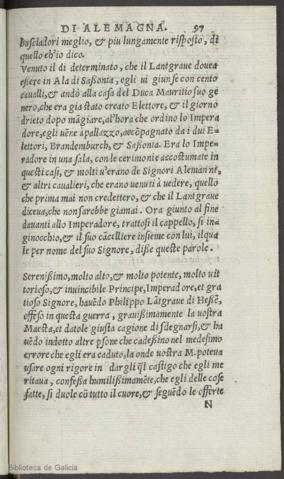 DI ALEMAGNA. 57
basciadori meglio, & piu lungamente risposto, di
quello ch'io dico.
Venuto il dì determinato, che il Lantgraue douea
essere in Ala di Saßonia, egli ui giunse con cento
caualli, & andò alla casa del Duca Mauritio suo ge
nero, che era gia stato creato Elettore, & il giorno
drieto dopo mãgiare, al'hora che ordino lo Impera
dore, egli uẽne a pallazzo, accõpagnato da i dui E=
lettori, Brandemburch, & Saßonia. Era lo Impe=
radore in una sala, con le cerimonie accostumate in
questi casi, & molti u'erano de Signori Alemanni,
& altri cauallieri, che erano uenuti à uedere, quello
che prima mai non credettero, & che il Lantgraue
diceua, che non sarebbe giamai. Ora giunto al fine
dauanti allo Imperadore, trattosi il cappello, si in=
ginocchio, & il suo cãcelliere insieme con lui, il qua
le per nome del suo Signore, diße queste parole.
Serenißimo, molto alto, & molto potente, molto uit
torioso, & inuincibile Principe, Imperadore, et gra
tioso Signore, hauẽdo Philippo Lãtgraue di Heßẽ,
offeso in questa guerra, grauißimamente la uostra
Maesta, et datole giusta cagione di sdegnarsi, & ha
uẽdo indotto altre psone che cadeßino nel medesimo
errore che egli era caduto, la onde uostra M. poteua
usare ogni rigore in dargli q̃l castigo che egli me
ritaua, confeßa humilißimamẽte, che egli delle cose
fatte, si duole cõ tutto il cuore, & seguẽdo le offerte
N
Biblioteca de Galicia